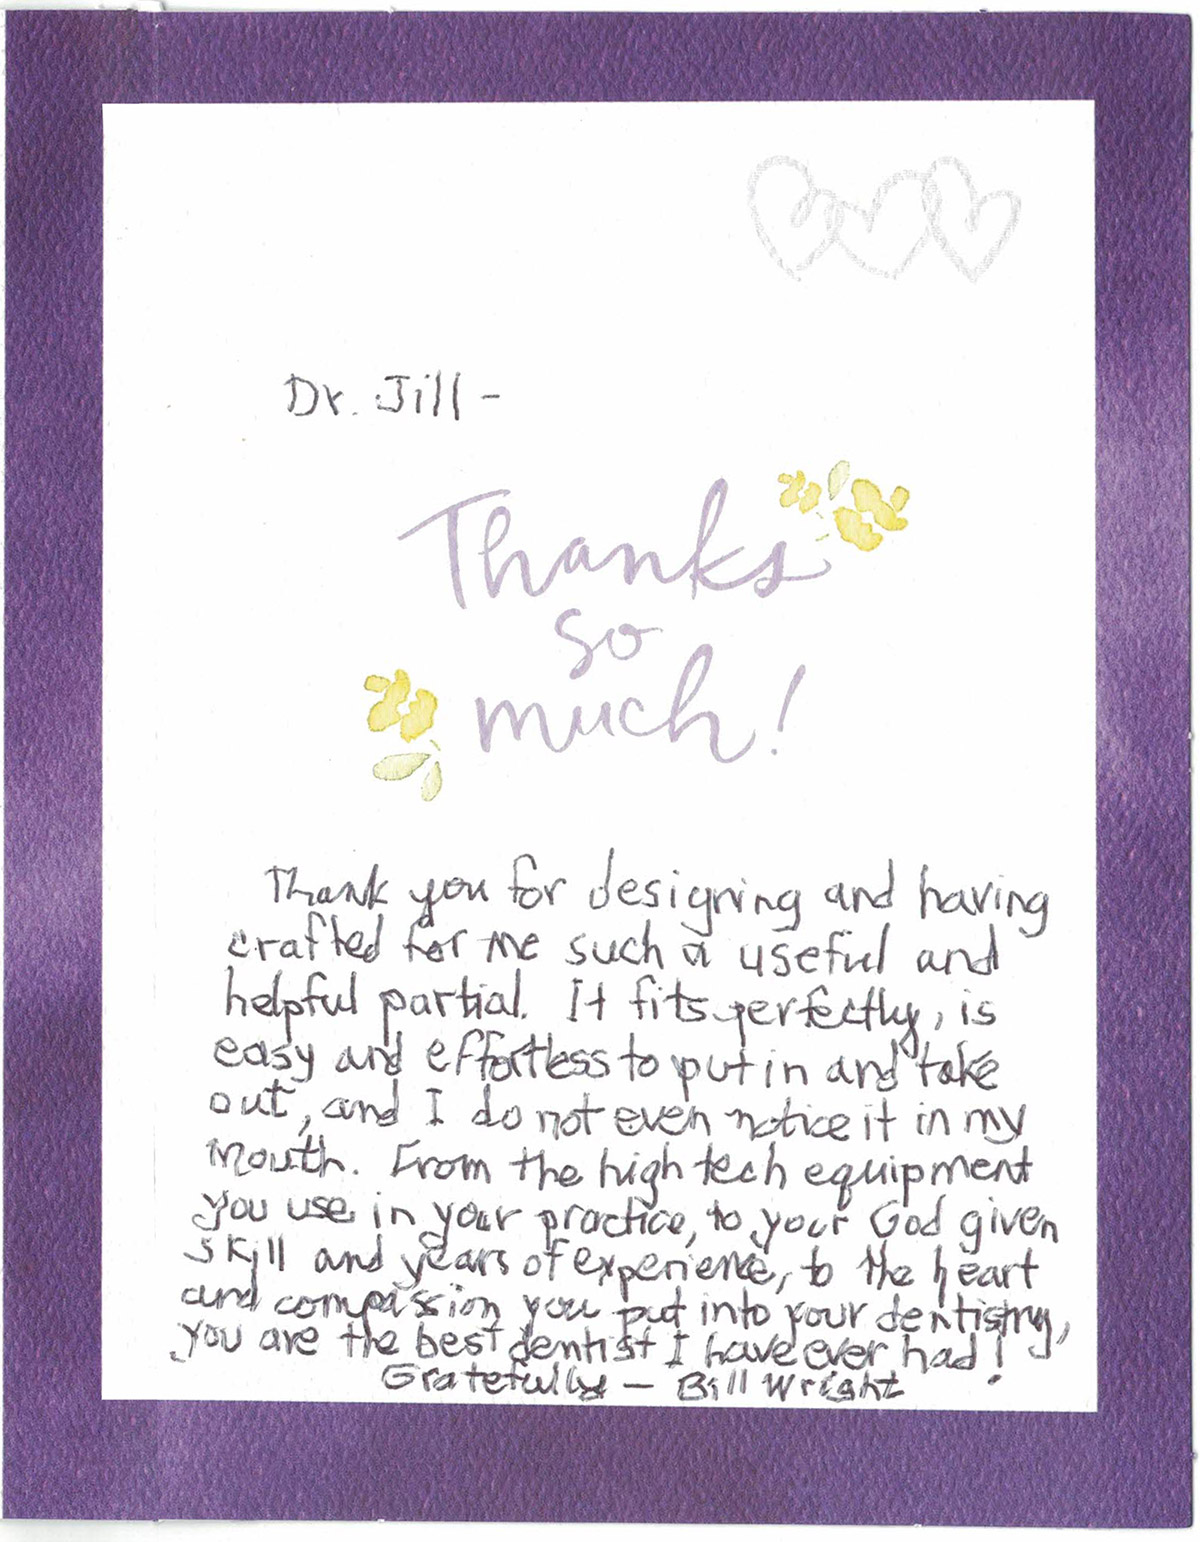 Dr. Jill -
Thanks
so
much!
Thank you for designing and having
crafted for me such a useful and
helpful partial. It fits perfectly, is
easy and effortless to put in and take
out, and I do not even notice it in my
mouth. From the high tech equipment
you use in your practice, to your God given
skill and years of experience, to the heart
and compassion you put into your dentistry,
you are the best dentist I have ever had!
Gratefully - Bill Wright